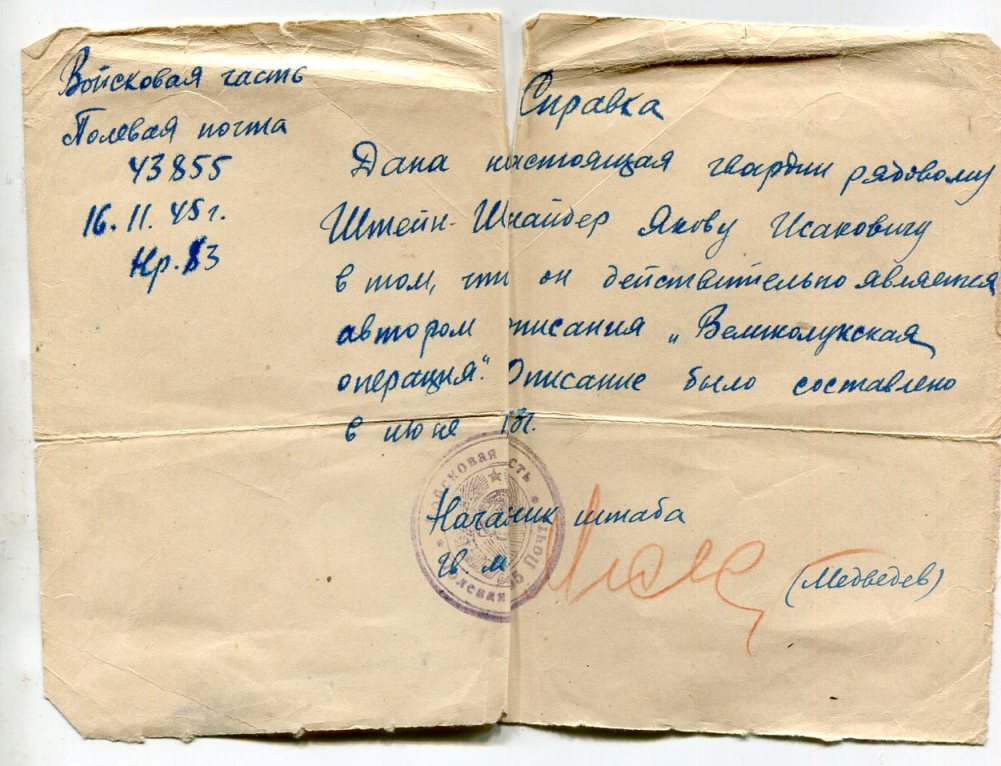 Войсковая часть
Полевая почта
43855
16. 11. 45 г.
Нр. 83
Справка
Дана настоящая гвардии рядовому
Штейн-Шнайдер Якову Исаковичу
в том, что он действительно является
автором описания „Великолукская
операция." Описание было составлено
в июне г.
Начальник штаба
Гв. м
(Медведев)